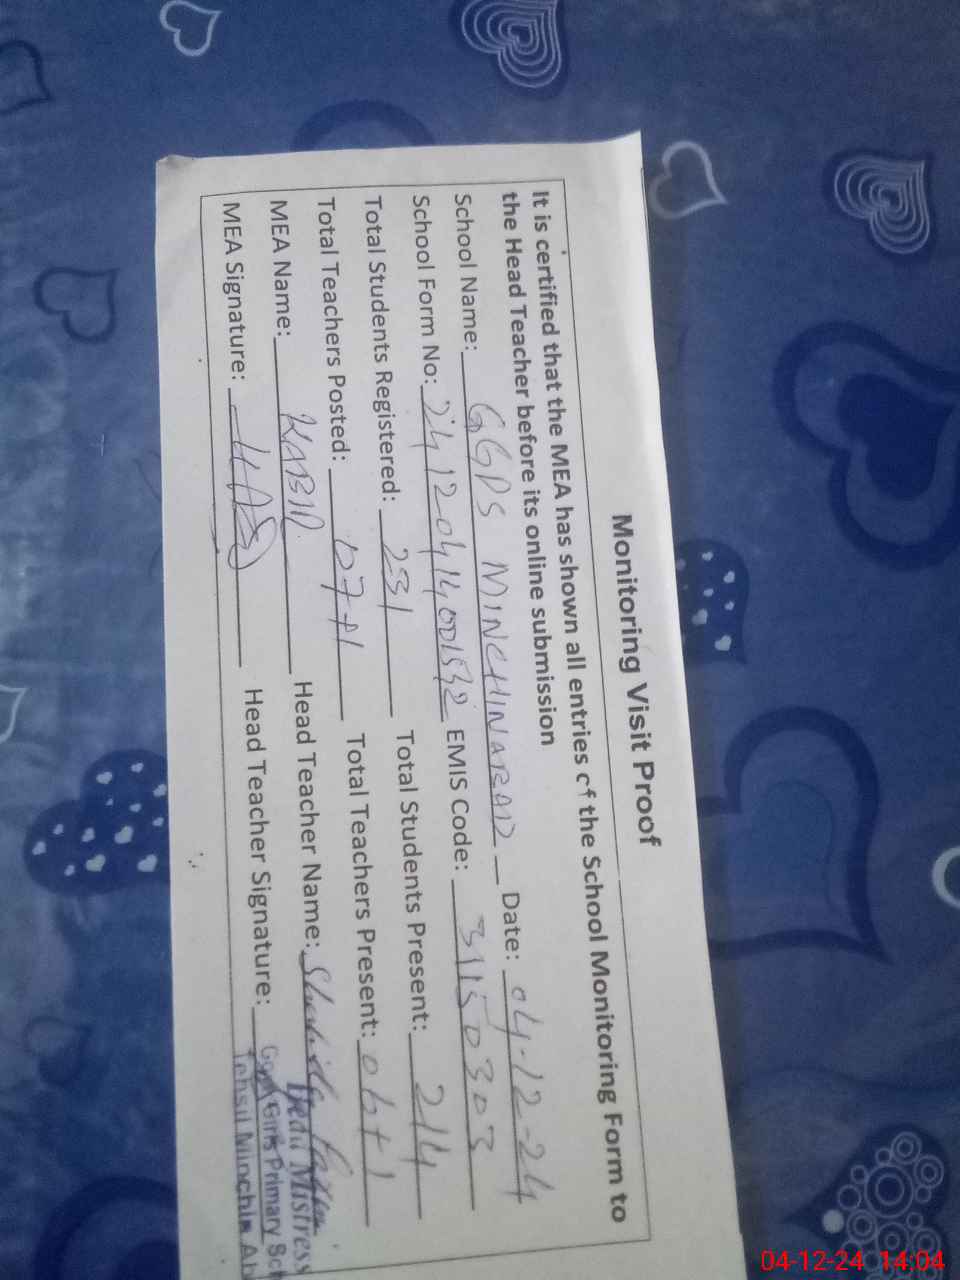 Monitoring Visit Proof
It is certified that the MEA has shown all entries of the School Monitoring Form to
the Head Teacher before its online submission
School Name: GGPS MINCHINABAD Date: 04-12-24
School Form No: 24120414001532 EMIS Code: 31150303
Total Students Registered: 231 Total Students Present: 214
Total Teachers Posted: 07+1 Total Teachers Present: 06+1
MEA Name: KABIR Head Teacher Name:
MEA Signature: Head Teacher Signature:
Head Mistress
Govt Girls Primary Sch
Tehsil Minchin Ab
04-12-24 14:04